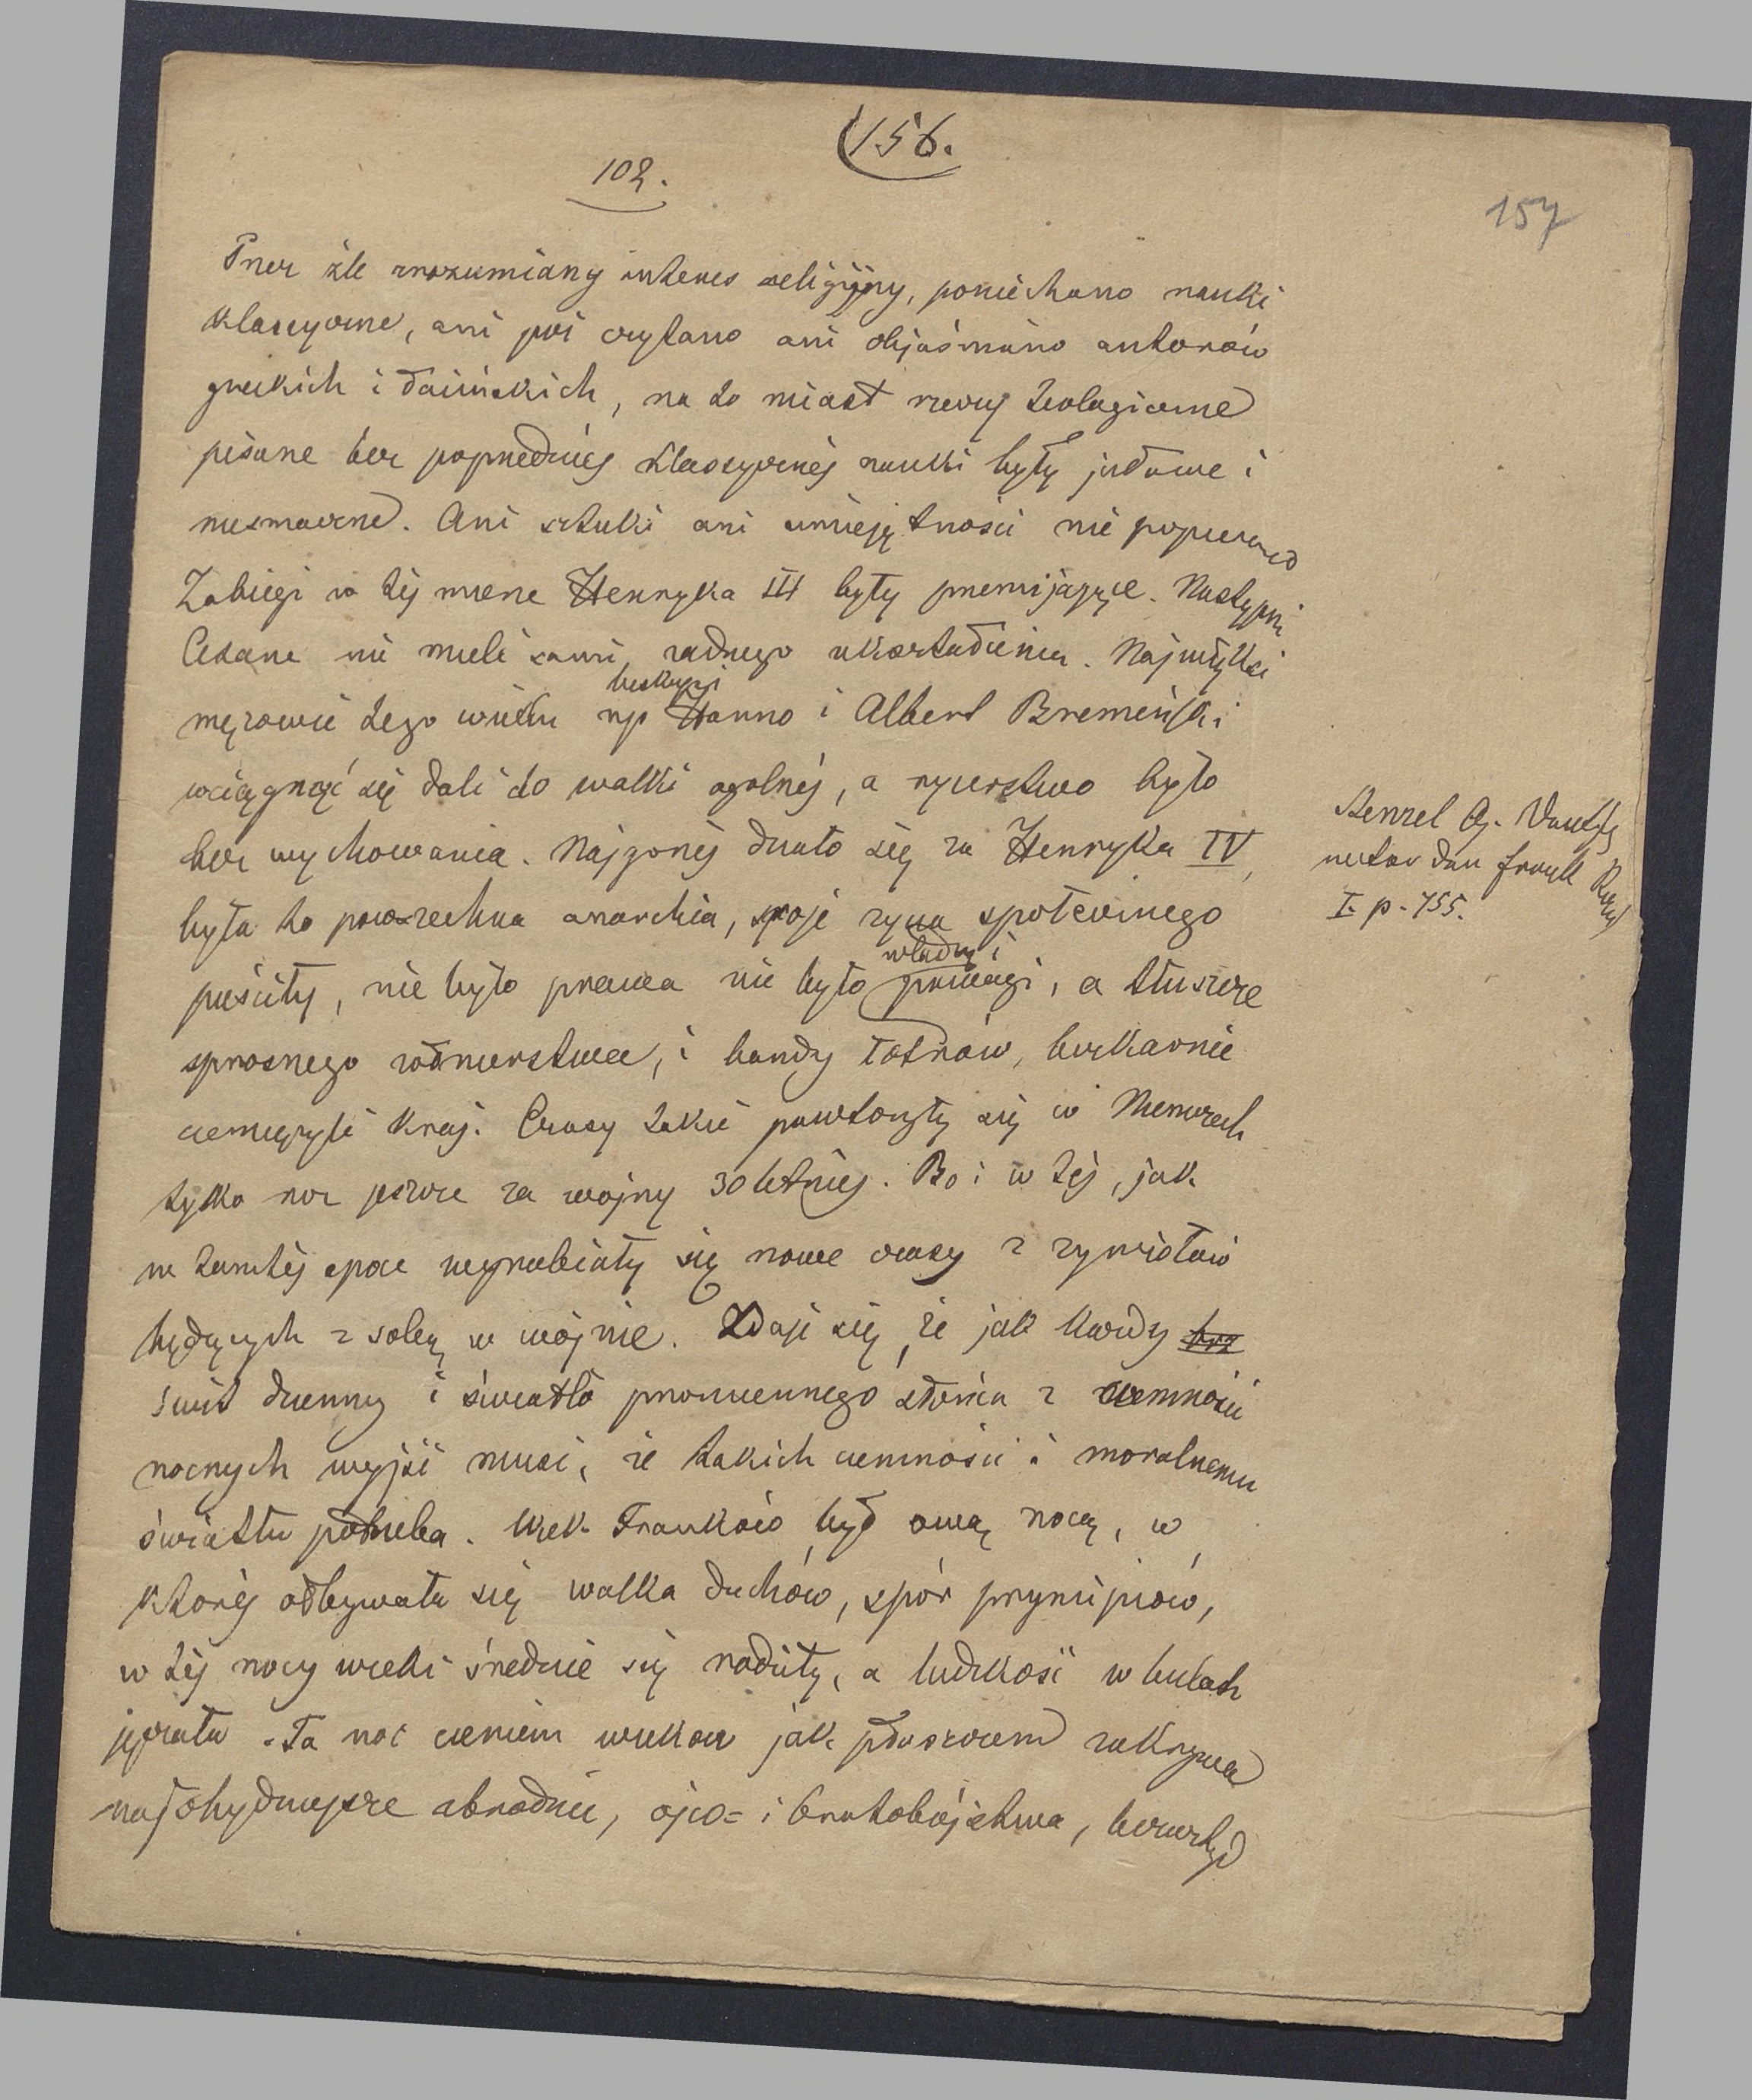 156.
102.
157
Przez źle zrozumiany interes religijny, poniechano nauki
klasyczne, ani już czytano ani objaśniano autorów
greckich i łacińskich, na to miast rzeczy teologiczne
pisane bez poprzedniej klasycznej nauki były jałowe i
niesmaczne. Ani sztuki ani umiejętności nie popierano
Zabiegi w tej mierze Henryka III były przemijające. Następni
Cesarze nie mieli sami żadnego ukształcenia. Najwięksi
mężowie tego wieku np biskupi Hanno i Albert Bremeński
wciągnąć się dali do walki ogólnej, a rycerstwo było
bez wychowania. Najgorzej działo się za Henryka IV,
była to powszechna anarchia, spoje życia społecznego
puściły, nie było prawa nie było władzy i powagi, a tłuszcze
sprosnego żołnierstwa, i bandy łotrów, bezkarnie
ciemiężyli kraj. Czasy takie powtórzyły się w Niemczech
tylko raz jeszcze za wojny 30 letniej. Bo i w tej, jak
w tamtej epoce wyrabiały się nowe czasy z żywiołów
będących z sobą w wojnie. Zdaje się, że jak każdy brz
świt dzienny i światło promiennego słońca z ciemności
nocnych wyjść musi, że takich ciemności i moralnemu
światu potrzeba. Wiek Franków był ową nocą, w
której odbywała się walka duchów, spór pryncipiów,
w tej nocy wieki średnie się rodziły, a ludzkość w bólach
jęczała. Ta noc cieniem wieków jak płaszczem zakrywa
najohydniejsze zbrodnie, ojco= i bratobójstwa, bezwstyd
Stenzel G. Deutschl
unter den fränk
I. p. 755.